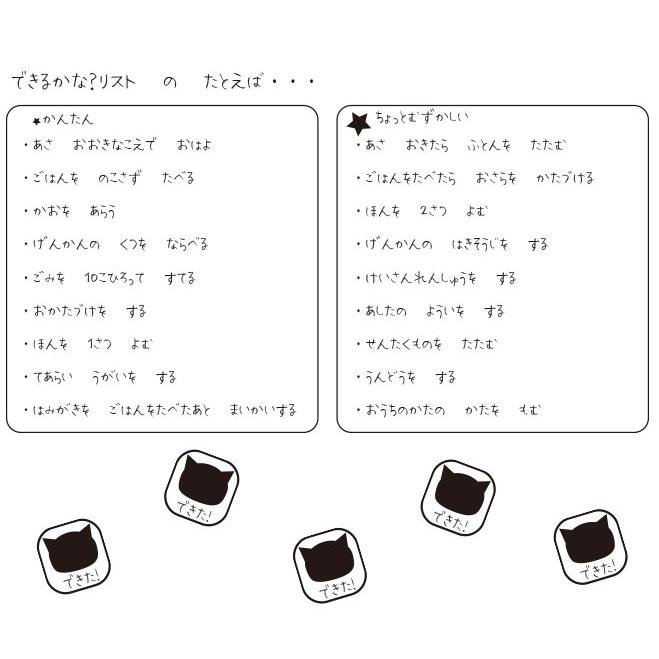 できるかな?リスト の たとえば・・・
★かんたん
・あさ おおきなこえで おはよ
・ごはんを のこさず たべる
・かおを あらう
・げんかんの くつを ならべる
・ごみを 10こひろって すてる
・おかたづけを する
・ほんを 1さつ よむ
・てあらい うがいを する
・はみがきを ごはんをたべたあと まいかいする
★ちょっとむずかしい
・あさ おきたら ふとんを たたむ
・ごはんをたべたら おさらを かたづける
・ほんを 2さつ よむ
・げんかんの はきそうじを する
・けいさんれんしゅうを する
・あしたの よういを する
・せんたくものを たたむ
・うんどうを する
・おうちのかたの かたを もむ
できた!
できた!
できた!
できた!
できた!